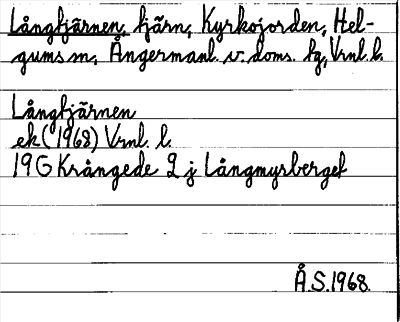 Långtjärnen, tjärn, Kyrkojorden, Hel-
gums sn, Ångermanl. v. doms. hg, Vrnl. l.
Långtjärnen
ek (1968) Vrnl. l.
19G Krångede 9 j Långmyrberget
Å.S. 1968.